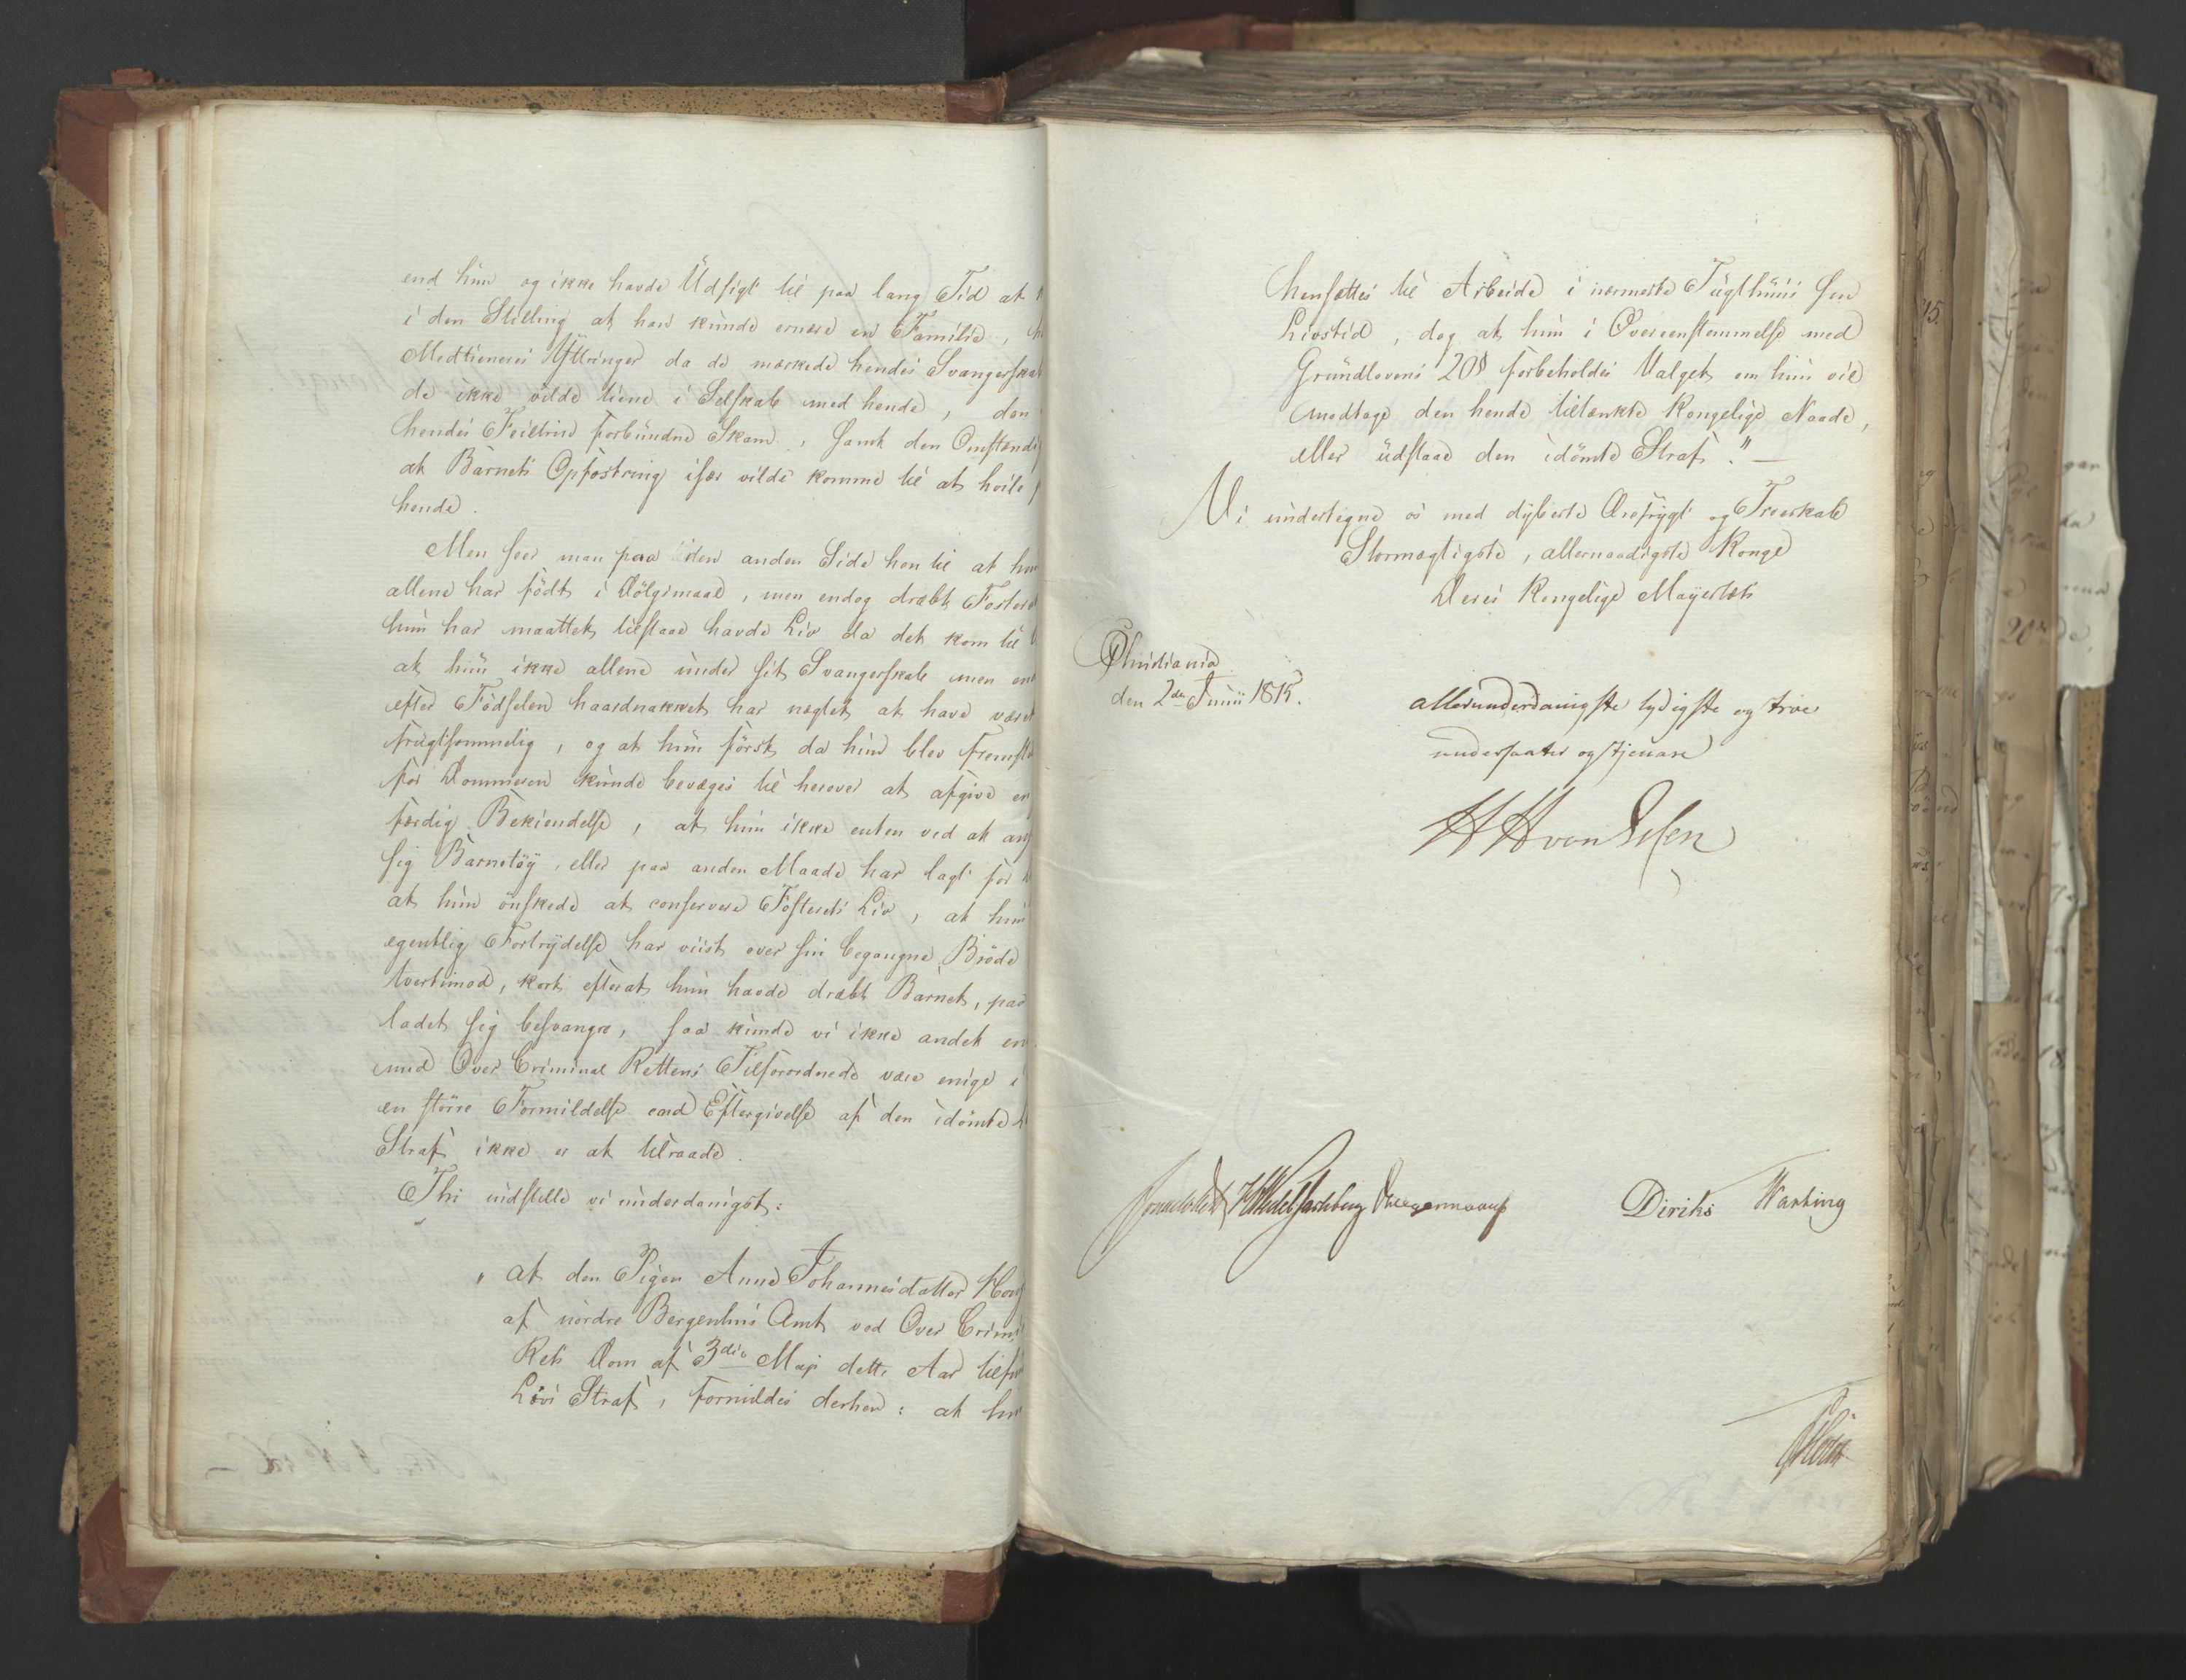 end hun og ikke havde Udsigt til paa lang Tid at
i den Stilling at han kunde ernære en Familie,
Medtieneres Yttringer da de mærkede hendes Svangerska
de ikke vilde tiene i Selskab med hende, den
hendes Feiltrin forbundne Skam, samt den Omstændi
at Barnets Opfostring især vilde komme til at hvile
hende.
Men seer man paa den anden Side hen til at hun
allene har födt i Dölgsmaal, men endog dræbt Fosteret
hun har maattet tilstaae havde Liv da det kom til
at hun ikke allene under sit Svangerskab men en
efter Födselen haardnakket har nægtet at have været
frugtsommelig, og at hun först da hun blev fremst
for Dommeren kunde bevæges til herover at afgive en
færdig Bekiendelse, at hun ikke enten ved at an
sig Barnetöÿ eller paa anden Maade har lagt for
at hun önskede at conservere Fosterets Liv, at hun
egentlig Fortrÿdelse har viist over sin begangne Bröde
tvertimod, kort efterat hun havde dræbt Barnet, paa
ladet sig besvangre, saa kunde vi ikke andet en
med Over Criminal Rettens Tilforordnede være enige i
en större Formildelse end Eftergivelse af den idömte
Straf ikke er at tilraade.
Thi indstille vi underdanigst:
" at den Pigen Anne Johannesdatter Hov
af nordre Bergenhus Amt ved Over Crimi
Rets Dom af 3die Maji dette Aar tilfu
Livs Straf, formildes derhen: at hun
hensættes til Arbeide i nærmeste Tugthuus sin
Livstid, dog at hun i Overeensstemmelse med
Grundlovens 20§ forbeholdes Valget om hun vil
modtage den hende tiltænkte Kongelige Naade,
eller udstaae den idömte Straf." —
Vi undertegne os med dÿbeste Ærefrÿgt og Troeskab
Stormægtigste, allernaadigste Konge
Deres Kongelige Mayestæts
Christiania
den 2den Junii 1815.
allerunderdanigste lydigste og troe
undersaatter og tjenare
HHvon Essen
HWedel Jarlsberg
Diriks
Harbing
Holm